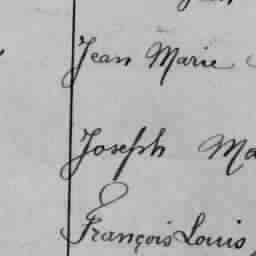 Jean Marie
Joseph Ma
François Louis